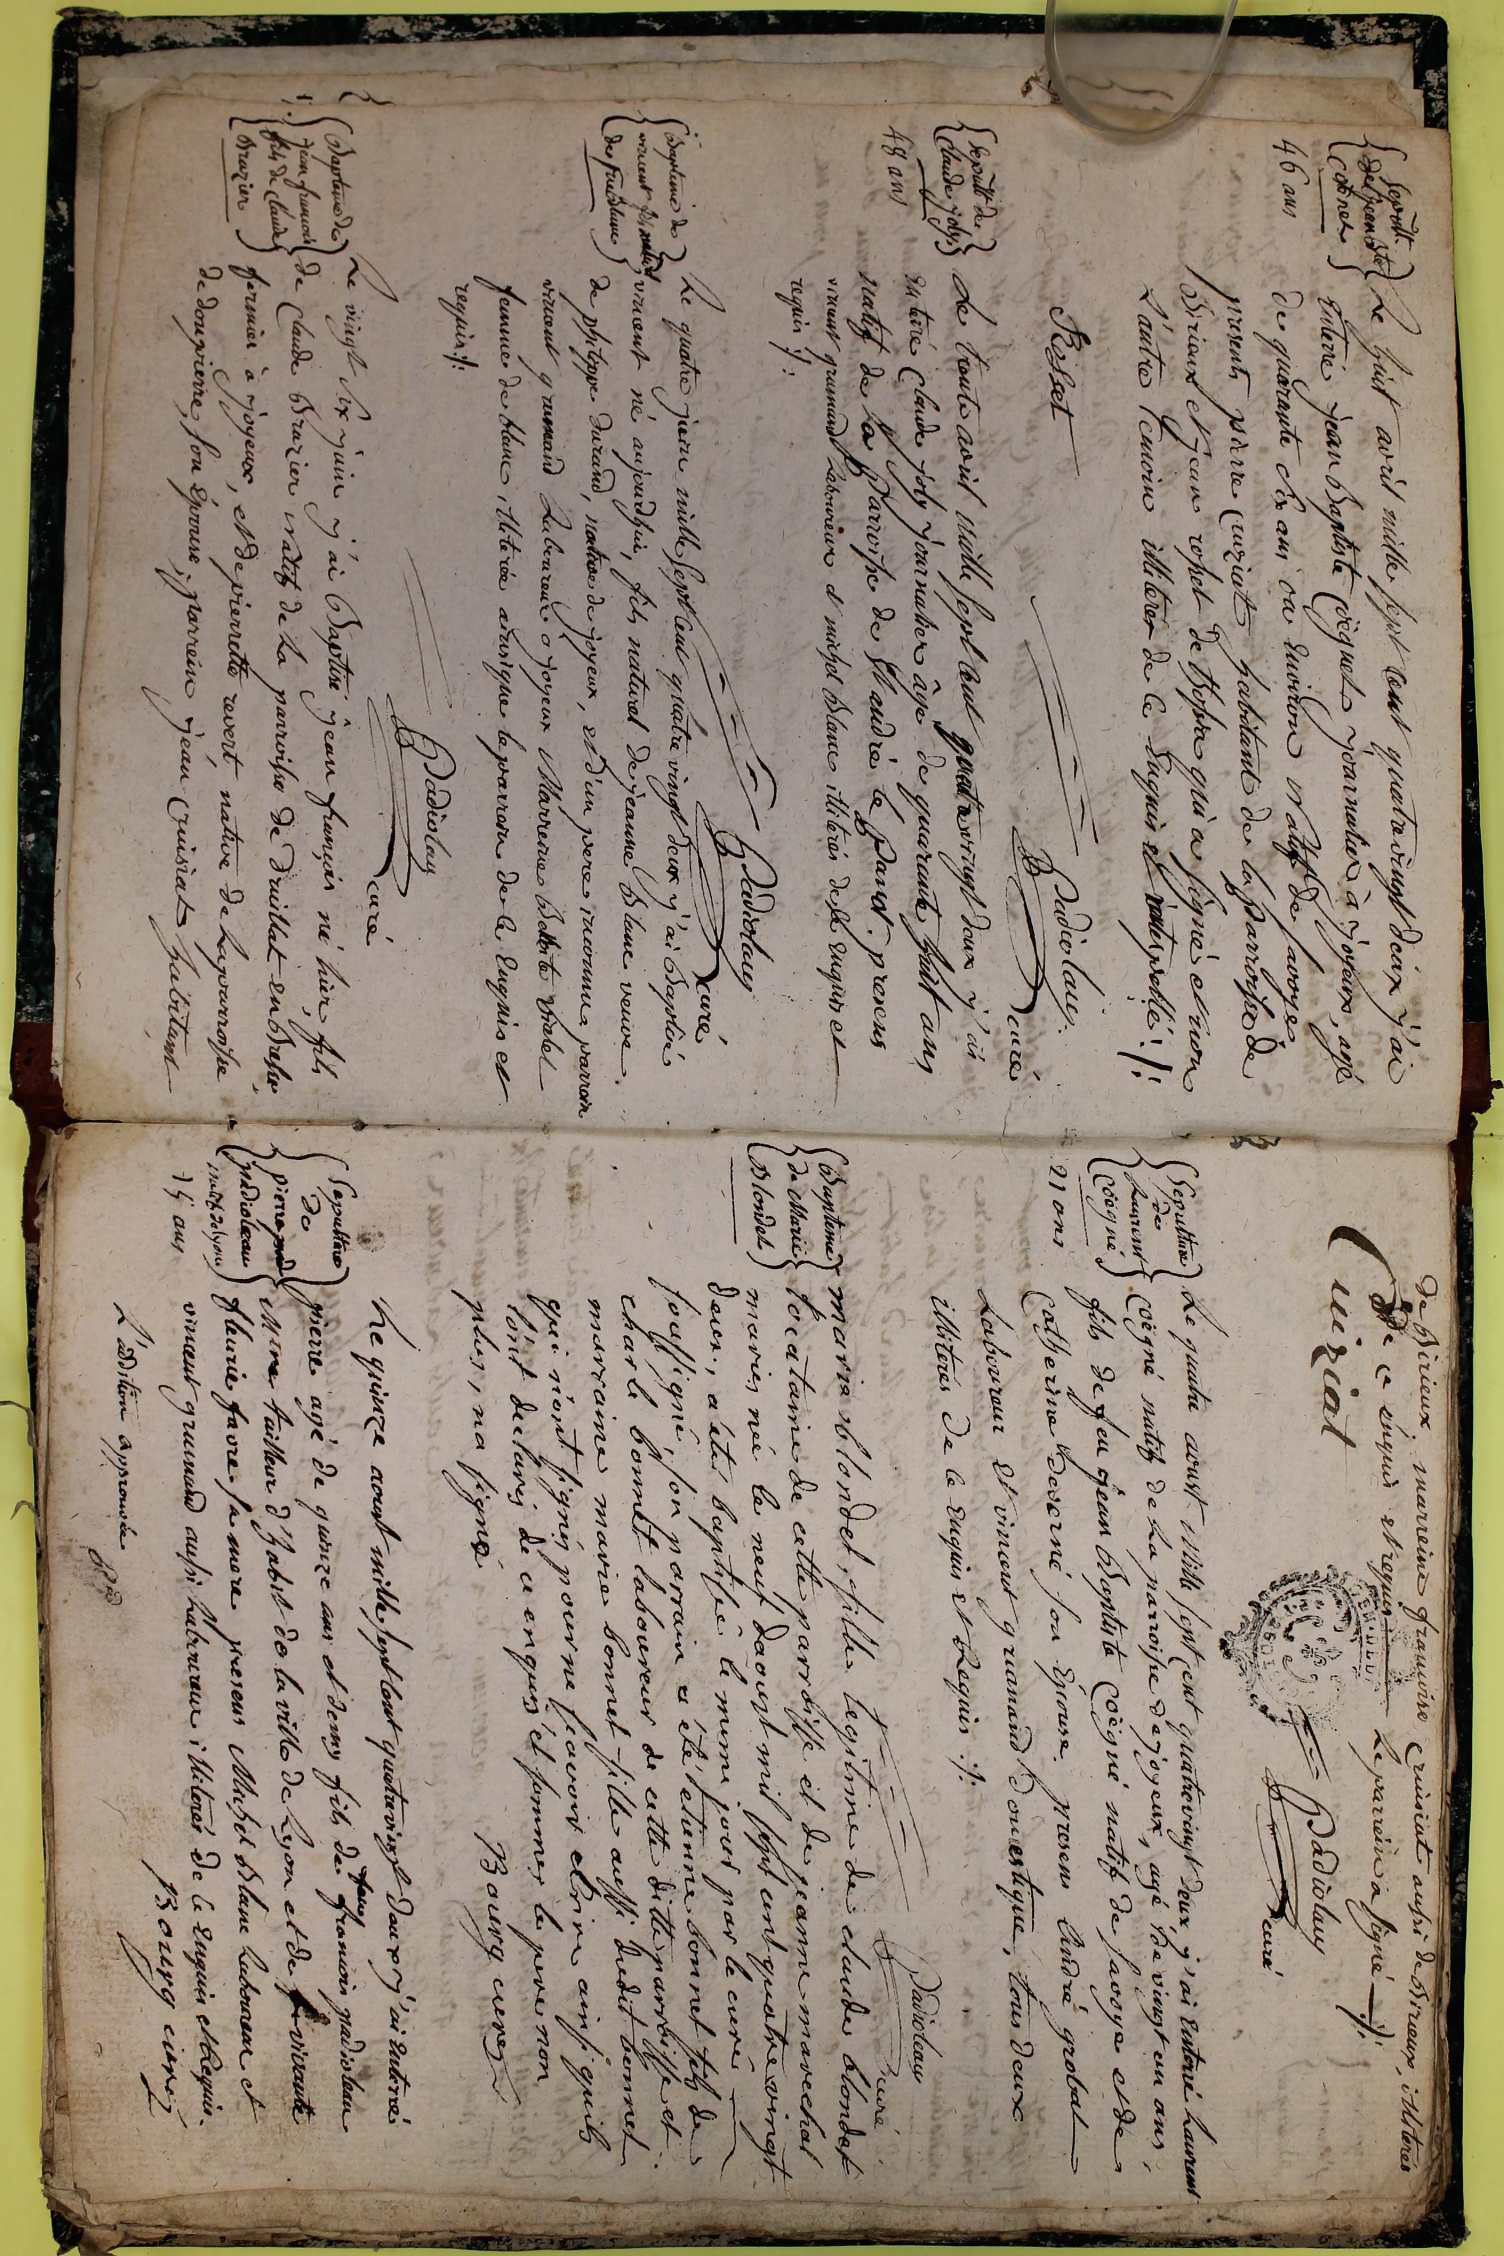 Sepult.
de jean Bte
Coënet
46 ans
Le huit avril mille sept cent quatrevingt deux j'ai
Enterré jean Baptiste Coëgnet journalier à joyeux, agé
de quarante six ans ou environ natif de savoye
presents pierre Cuziat habitant de la parroisse de
Birieux et jean roset de Bussa qui a signé et non
L'autre temoin illiteré de ce Enquis et interpellé ./.
Roset
Badiolay
curé
Sepult. de
Claude joly
48 ans
Le trente avril mille sept cent quatrevingt deux j'ai
enterré Claude joly journalier âgé de quarante huit ans
natif de La Parroisse de St andré le panot. presens
vincent grumand Laboureur et michel Blanc illiterés de ce Enquis et
requis ./.
Badiolay
curé
Baptême de
vincent fils naturel
de jne Blanc
Le quatre juin mille sept cent quatre vingt deux j'ai Baptisé
vincent né aujourdhui, fils naturel de jeanne Blanc veuve
de philippe durand, native de joyeux, et d'un pere inconnu, parrain
vincent grumand Laboureur à joyeux Marreine Benoite violet
femme de blanc, illiterée ainsi que le parrain de ce Enquis et
requis ./.
Badiolay
curé
Baptême de
jean francois
fils de Claude
Brazier
Le vingt six juin j'ai Baptisé jean françois né hier, fils
de Claude Brazier natif de La paroisse de druillat en Bresse,
fermier à joyeux, et de pierrette revert, native de La parroisse
de dompierre, son Epouse, parrain jean Cruisiat habitant
de Birieux marreine francoise Cruisiat aussi de Birieux, illiterés
de ce Enquis et requis Le parrein a signé ./.
Cuiziat
Badiolay
curé
Sepulture
de
Laurent
Coëgné
21 ans
Le quatre aoust mille sept cent quatrevingt deux j'ai Enterré Laurent
Coëgné natif de La parroisse de joyeux, agé de vingt un ans,
fils de feu jean Baptiste Coëgné natif de savoye et de
Catherine deserné son Epouse. presens andré grobat
Laboureur et vincent grumand domestique, tous deux
illiterés de ce Enquis et Requis ./.
Badiolay
curé
Baptême
de Marie
Blondet
marie blondet, fille legitime de claude blondet
locataire de cette parroisse et de jeanne marechal
mariés née le neuf daoust mil sept cent quatre vingt
deux, a été baptisée le meme jour par le curé
soussigné, son parrain a été etienne bonnet fils de
charle bonnet laboureur de cette ditte parroisse et
marraine marie bonnet fille aussi dudit bonnet
qui n'ont signés pour ne scavoir ecrire ainsi quils
lont declarés de ce enquis et sommés le pere non
plus, na signé
Bourg curé
Sepulture
de
pierre
gradioleau
natif de Lyon
15 ans
Le quinze aoust mille sept cent quatrevingt deux j'ai enterré
pierre agé de quinze ans et demy fils de feu francois gradioleau
Mtre tailleur d'habit de la ville de Lyon et de vivante
fleurie favre sa mere presens Michel Blanc Laboureur et
vincent grumand aussi Laboureur illiterés de ce Enquis et Requis.
L'addition approuvée
Bourg curé